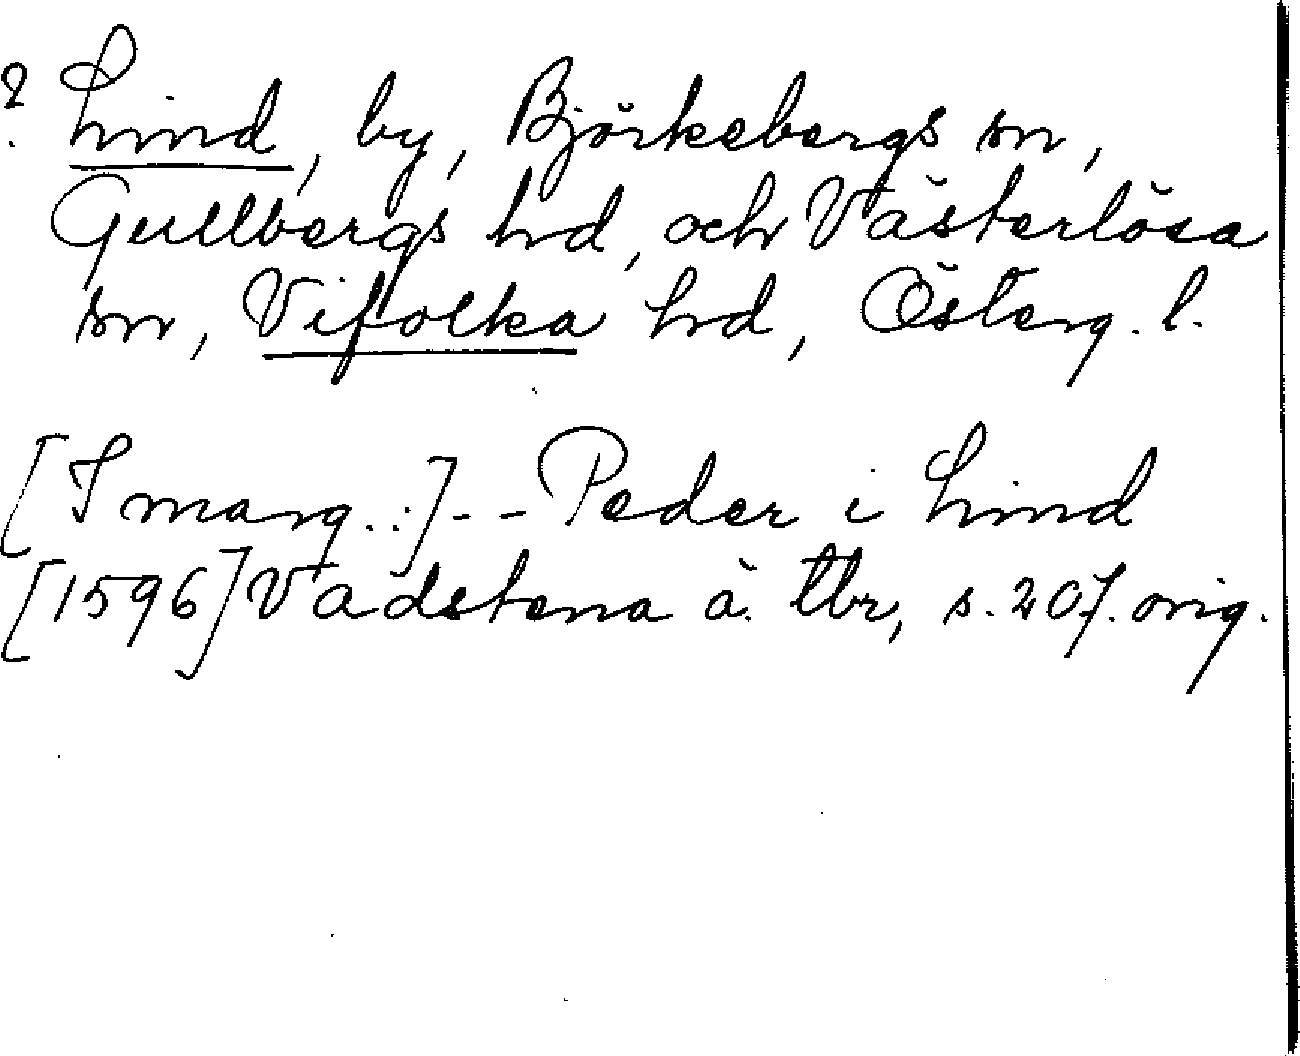 ? Lind, by, Björkebergs sn,
Gullbergs hd, och Västerlösa
sn, Vifolka hd, Österg. l.
[I marg.:] -- Peder i Lind
[1596] Vadstena ä. tbr, s. 207. orig.